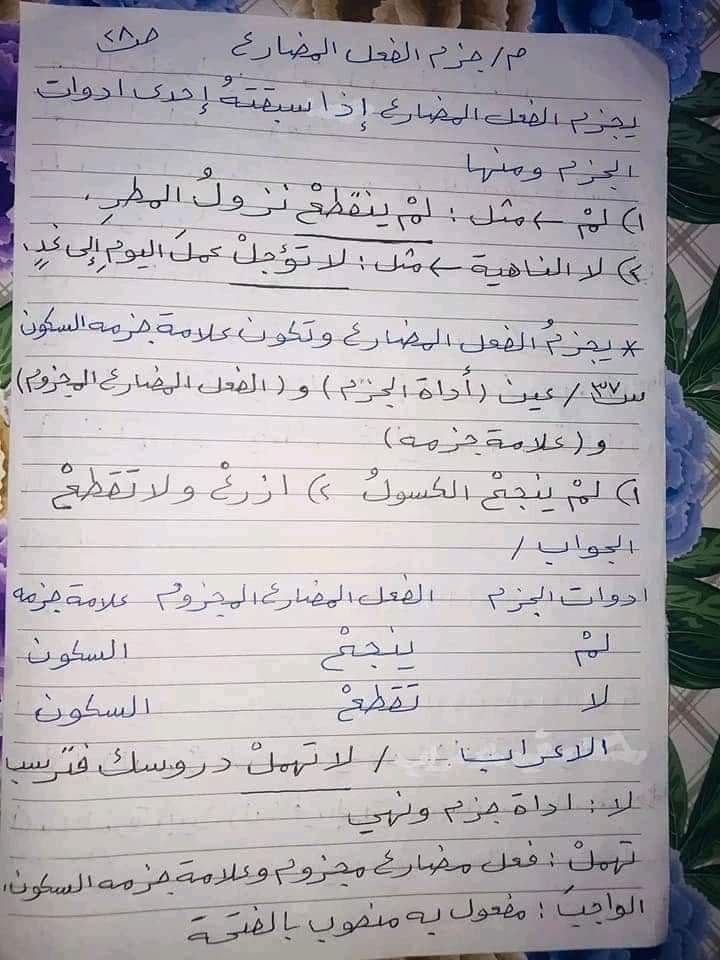 م/ جزم الفعل المضارع ص٢٨
يجزم الفعل المضارع إذا سبقتهُ إحدى ادوات
الجزم ومنها
١) لمْ ← مثل : لمْ ينقطعْ نزولُ المطرِ.
٢) لا الناهية ← مثل : لا تؤجلْ عملَ اليومِ إلى غدٍ.
* يجزمُ الفعل المضارع وتكون علامة جزمه السكون
س٣٧/ عين (أداة الجزم) و (الفعل المضارع المجزوم)
و (علامة جزمه)
١) لمْ ينجحْ الكسولُ ٢) ازرعْ ولا تقطعْ
الجواب /
ادوات الجزم الفعل المضارع المجزوم علامة جزمه
لمْ ينجحْ السكون
لا تقطعْ السكون
الاعراب / لا تهملْ دروسك فترسب
لا : اداة جزم ونهي
تهملْ : فعل مضارع مجزوم وعلامة جزمه السكون.
الواجبَ : مفعول به منصوب بالفتحة